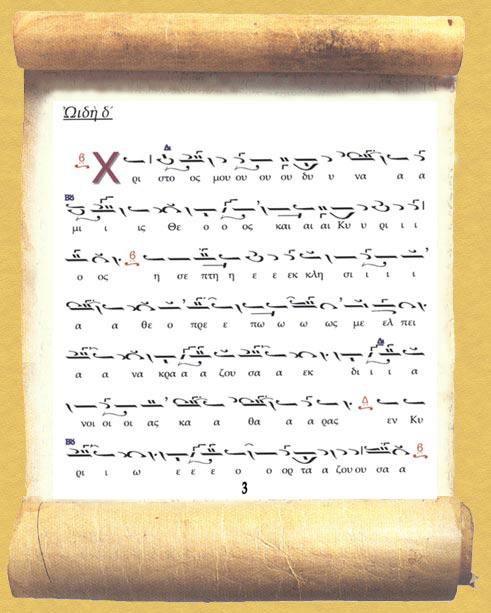 Ὠιδὴ δ´
Χ ρι στο ος μου ου ου ου δυ υ να α α
μι ι ις Θε ο ο ος και αι αι Κυ υ ρι ι ι
ο ος η σε πτη η ε ε εκ κλη σι ι ι ι
α α θε ο πρε ε πω ω ω ως με ελ πει
α α να κρα α α ζου σα α εκ δι ι ι α
νοι οι οι ας κα α θα α α ρας εν Κυ
ρι ι ω ε ε ε ο ο ορ τα α ζου ου σα α
3